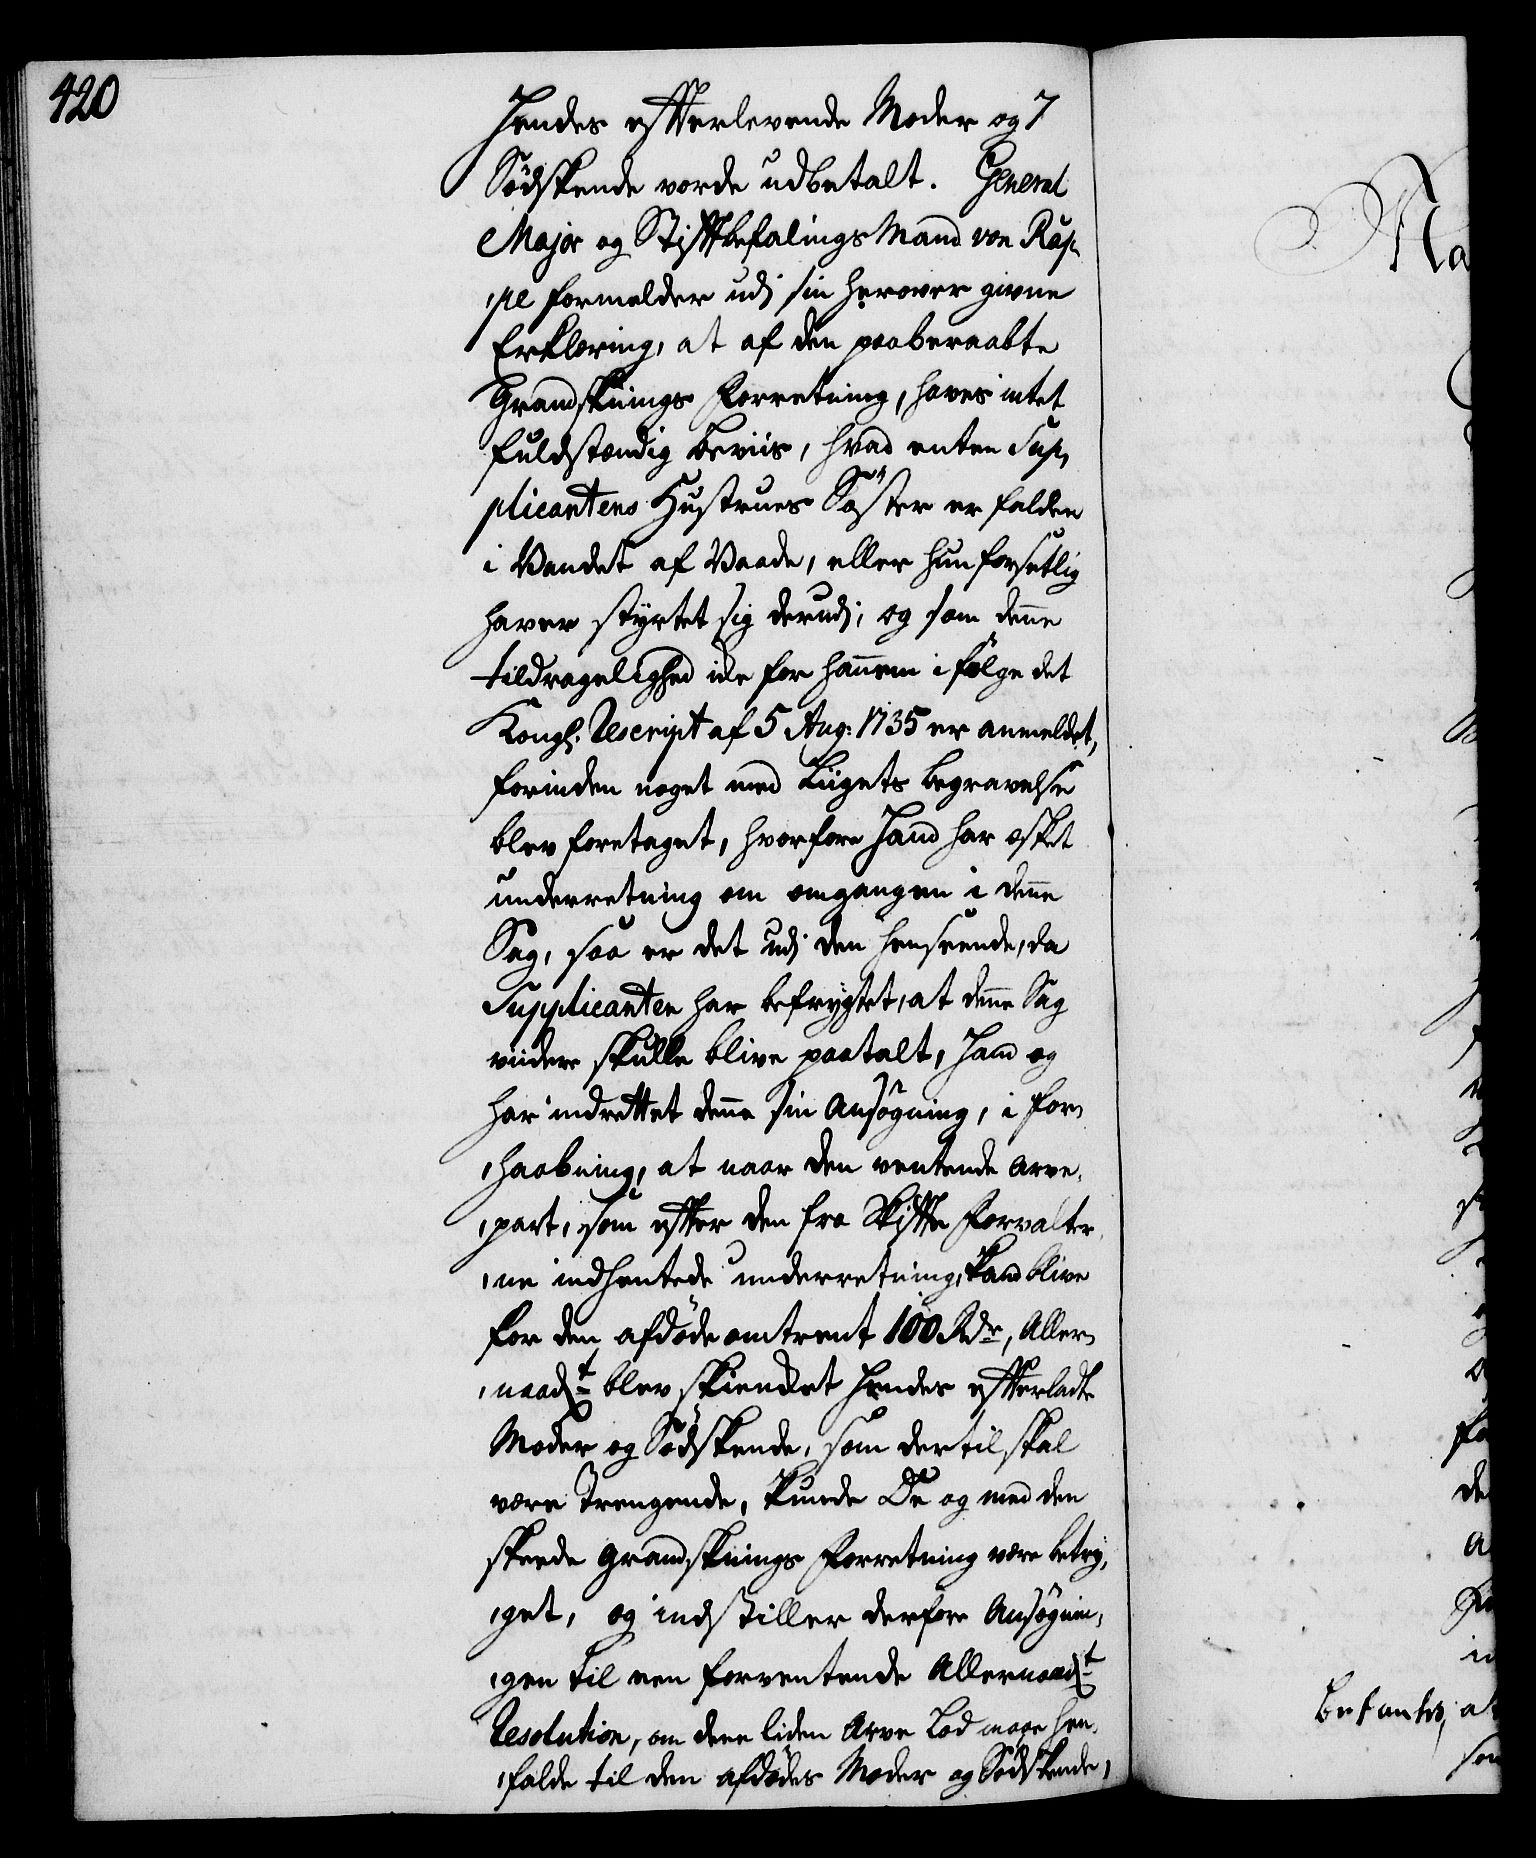 420
Hendes efterlevende Moder og 7
Sødskende vorde udbetalt. General
Major og Stiftbefalings Mand von Rap¬
pe formelder udj sin herover givne
Erklæring, at af den paaberaabte
Grandsknings Forretning, haves intet
fuldstændig beviis, hvad enten Sup¬
plicantens Hustrues Søster er falden
i Vandet af Vaade, eller hun forsetlig
haver styrtet sig derudj; og som denne
tildragelighed icke for hannem i følge det
Kongl. Rescript af 5 Aug: 1735 er anmeldet,
forinden noget med Liigets begravelse
blev foretaget, hvorfore Hand har æsket
underretning om omgangen i denne
Sag, saa er det udj den henseende, da
Supplicanten har befrygtet, at denne Sag
viidere skulle blive paatalt, Hand og
har indrettet denne sin Ansøgning, i for¬
haabning, at naar den ventende Arve¬
part, som efter den fra Skifte Forvalter¬
ne indhentede underretning, kand blive
for den afdøde omtrent 100 Rdr, Aller¬
naadt blev skiendet Hendes efterladte
Moder og Sødskende, som dertil skal
være Trengende, kunde De og med den
skeede Grandsknings Forretning være betry¬
get, og indstiller derfore Ansøgnin¬
gen til een forventende Allernaadt
Resolution, om den liden Arve Lod maae hen¬
falde til den afdødes Moder og Sødskende,
Na
bekante, at